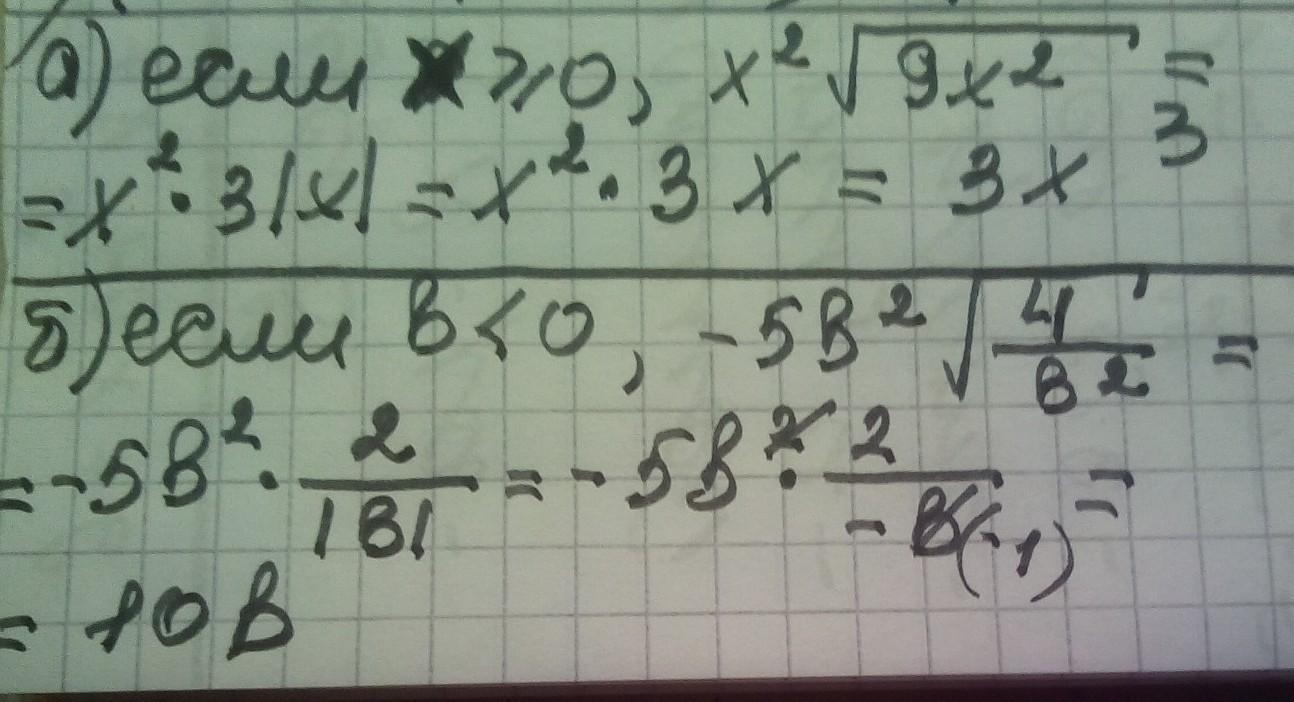 а) если x ≥ 0, x² √(9x²) =
= x² · 3|x| = x² · 3x = 3x³
б) если в < 0, -5в² √(4/в²) =
= -5в² · 2/|в| = -5в² · 2/-в(-1) =
= 10в